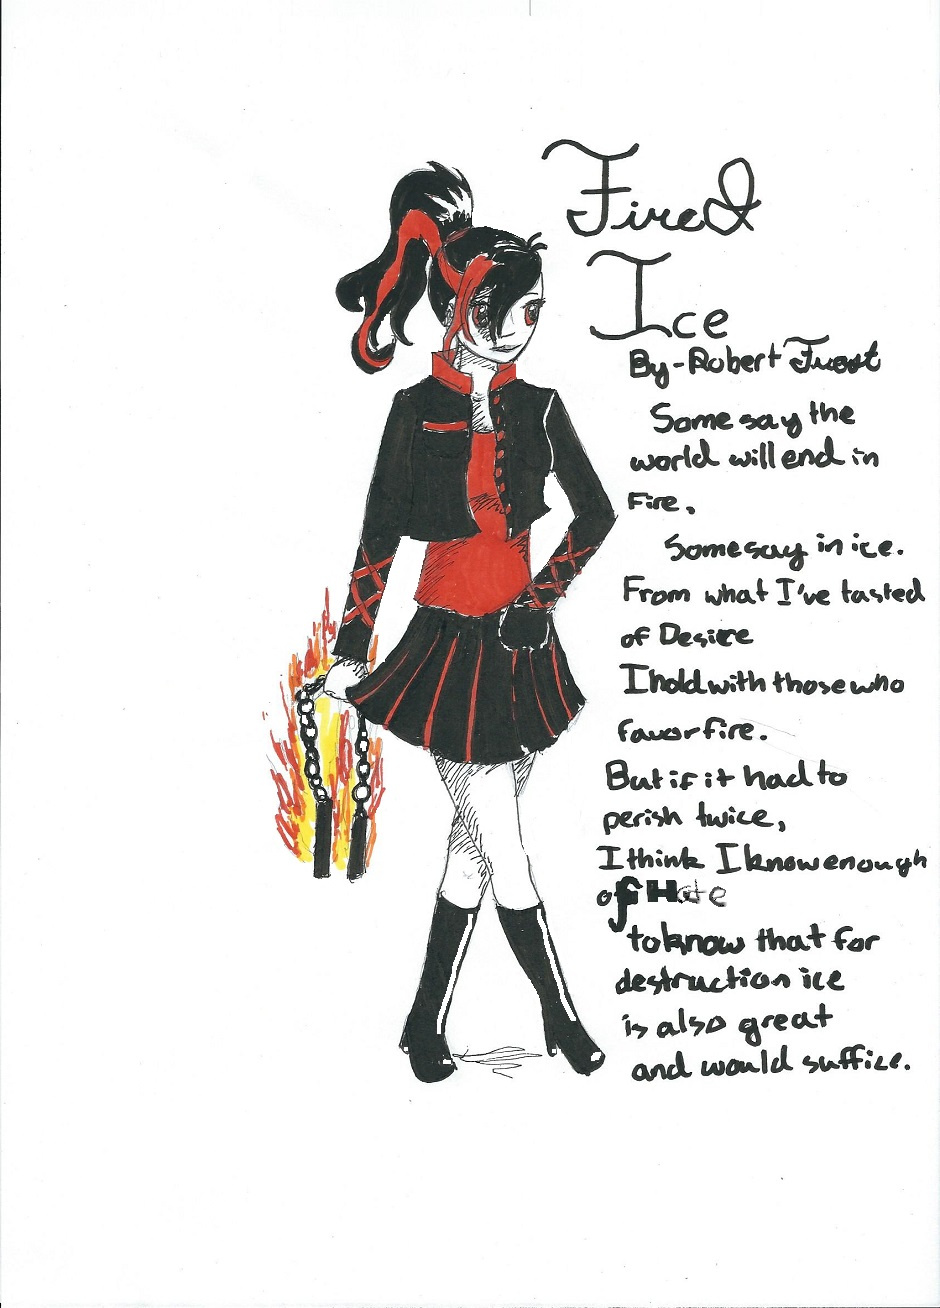 Fire &
Ice
By-Robert Frost
Some say the
world will end in
Fire.
Some say in ice.
From what I've tasted
of Desire
I hold with those who
favor fire.
But if it had to
perish twice,
I think I know enough
of Hate
to know that for
destruction ice
is also great
and would suffice.